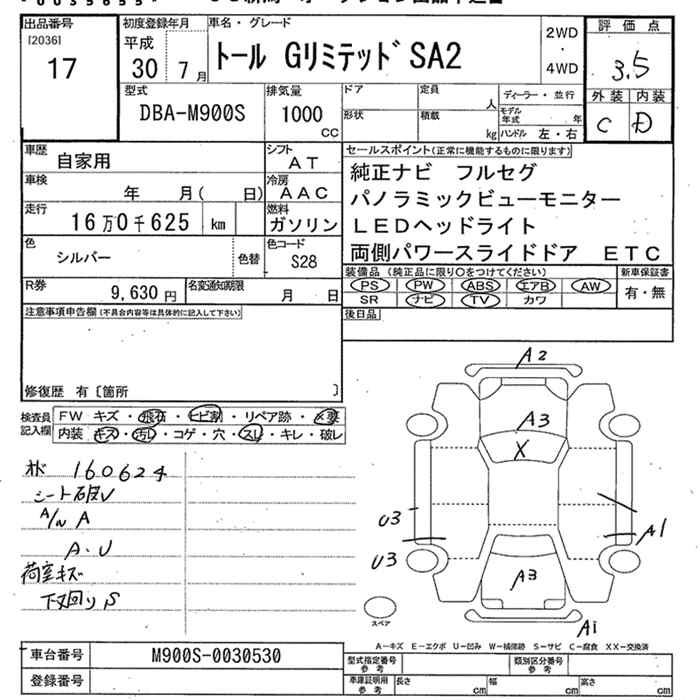 出品番号
[2036]
17
初度登録年月
平成
30 年 7 月
車名・グレード
トール GリミテッドSA2
2WD
・
4WD
評価点
3.5
外装 内装
C D
型式
DBA-M900S
排気量
1000
CC
ドア
定員
人
ディーラー・並行
形状
積載
kg
モデル年式
年
ハンドル 左・右
車歴
自家用
シフト
AT
車検
年 月( 日)
冷房
AAC
走行
16万0千625 km
燃料
ガソリン
色
シルバー
色替
色コード
S28
R券
9,630円
名変通知期限
月 日
セールスポイント(正常に機能するものに限ります)
純正ナビ フルセグ
パノラミックビューモニター
LEDヘッドライト
両側パワースライドドア ETC
装備品(純正品に限り○をつけてください)
新車保証書
PS PW ABS エアB AW
有・無
SR ナビ TV カワ
後日品
注意事項申告欄(不具合内容等は具体的に記入して下さい)
修復歴 有〔箇所 〕
検査員記入欄
FW キズ・飛石・ヒビ割・リペア跡・X要
内装 キズ・汚レ・コゲ・穴・スレ・キレ・破レ
160624
A/N A
A・U
荷室キズ
下回りS
A2
A3
X
U3
U3
A1
A3
A1
スペア
A-キズ E-エクボ U-凹み W-補修跡 S-サビ C-腐食 XX-交換済
車台番号
M900S-0030530
登録番号
型式指定番号
参考
類別区分番号
参考
車庫証明用
参考
長さ
cm
幅
cm
高さ
cm